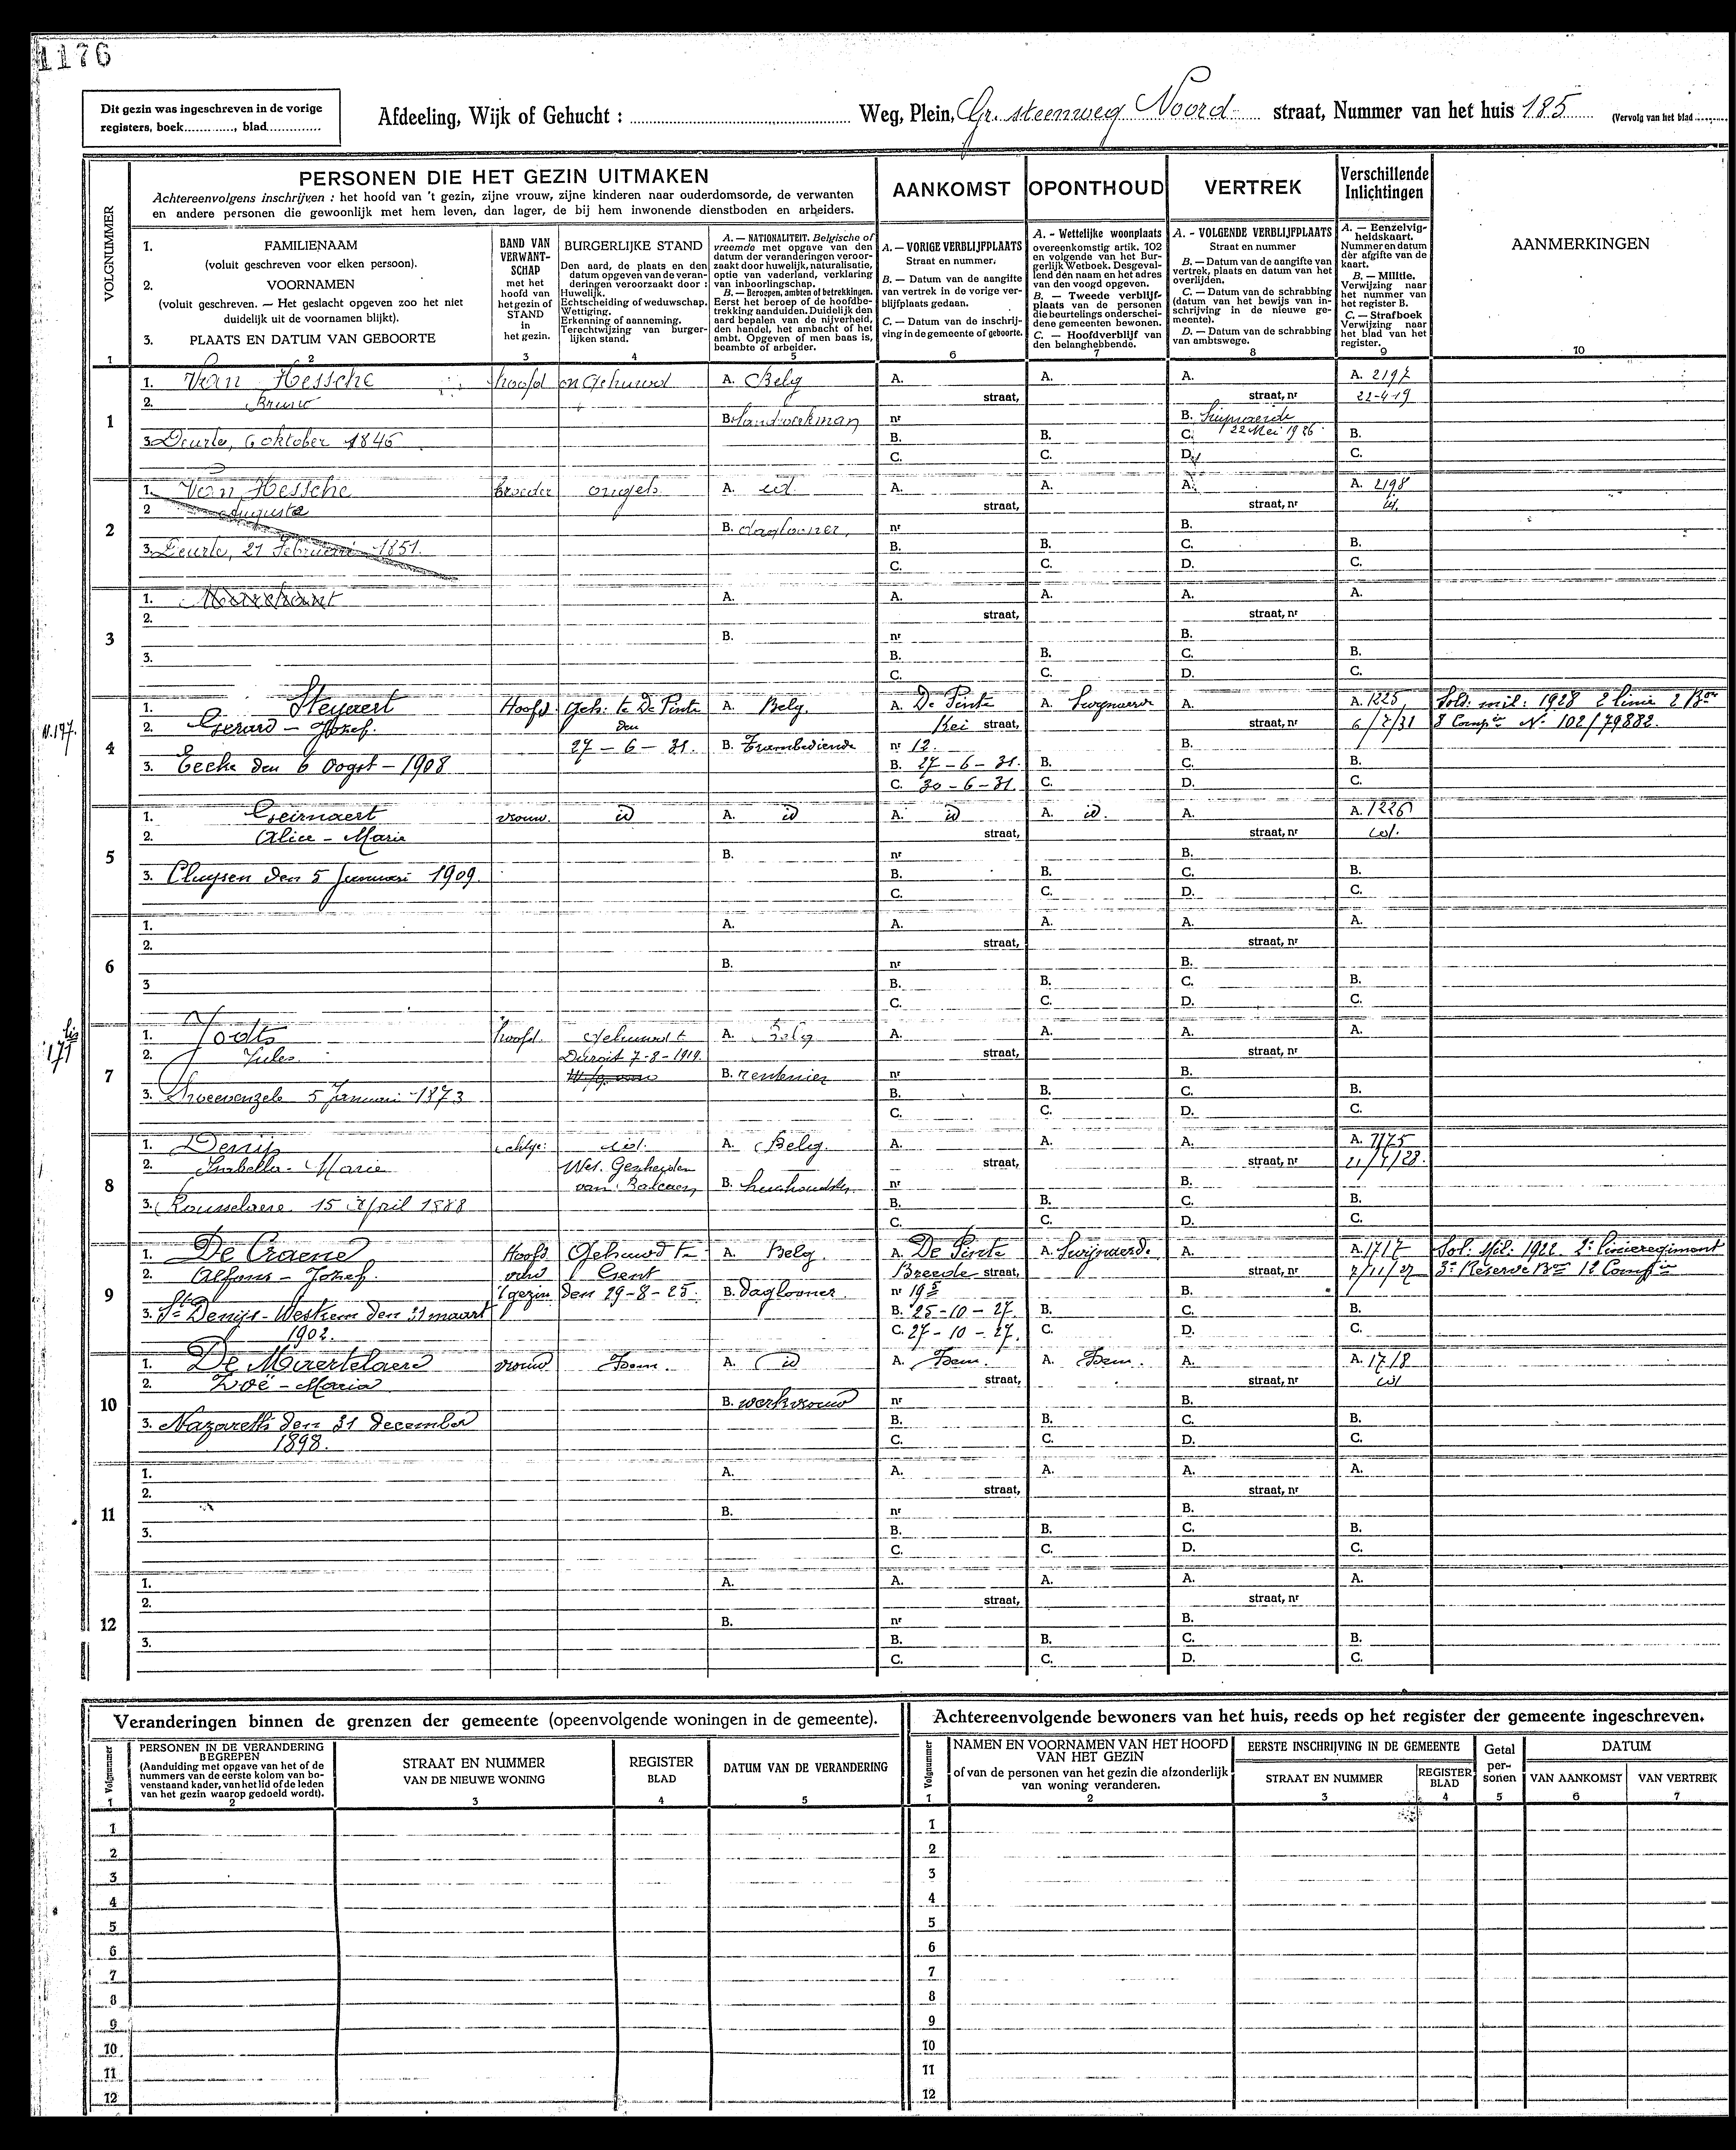 1176
Dit gezin was ingeschreven in de vorige
registers, boek............, blad..............
Afdeeling, Wijk of Gehucht : ........ Weg, Plein, Gr. steenweg Noord straat, Nummer van het huis 185 (Vervolg van het blad ........
VOLGNUMMER
PERSONEN DIE HET GEZIN UITMAKEN
Achtereenvolgens inschrijven : het hoofd van 't gezin, zijne vrouw, zijne kinderen naar ouderdomsorde, de verwanten
en andere personen die gewoonlijk met hem leven, dan lager, de bij hem inwonende dienstboden en arbeiders.
1. FAMILIENAAM
(voluit geschreven voor elken persoon).
2. VOORNAMEN
(voluit geschreven. — Het geslacht opgeven zoo het niet
duidelijk uit de voornamen blijkt).
3. PLAATS EN DATUM VAN GEBOORTE
BAND VAN
VERWANT-
SCHAP
met het
hoofd van
het gezin of
STAND
in
het gezin.
BURGERLIJKE STAND
Den aard, de plaats en den
datum opgeven van de veran-
deringen veroorzaakt door :
Huwelijk.
Echtscheiding of weduwschap.
Wettiging.
Erkenning of aanneming.
Terechtwijzing van burger-
lijken stand.
A. — NATIONALITEIT. Belgische of
vreemde met opgave van den
datum der veranderingen veroor-
zaakt door huwelijk, naturalisatie,
optie van vaderland, verklaring
van inboorlingschap.
B. — Beroepen, ambten of betrekkingen.
Eerst het beroep of de hoofdbe-
trekking aanduiden. Duidelijk den
aard bepalen van de nijverheid,
den handel, het ambacht of het
ambt. Opgeven of men baas is,
beambte of arbeider.
AANKOMST
A. — VORIGE VERBLIJFPLAATS
Straat en nummer.
B. — Datum van de aangifte
van vertrek in de vorige ver-
blijfplaats gedaan.
C. — Datum van de inschrij-
ving in de gemeente of geboorte.
OPONTHOUD
A. - Wettelijke woonplaats
overeenkomstig artik. 102
en volgende van het Bur-
gerlijk Wetboek. Desgeval-
lend dén naam en het adres
van den voogd opgeven.
B. — Tweede verblijf-
plaats van de personen
die beurtelings onderschei-
dene gemeenten bewonen.
C. — Hoofdverblijf van
den belanghebbende.
VERTREK
A. - VOLGENDE VERBLIJFPLAATS
Straat en nummer
B. — Datum van de aangifte van
vertrek, plaats en datum van het
overlijden.
C. — Datum van de schrabbing
(datum van het bewijs van in-
schrijving in de nieuwe ge-
meente).
D. — Datum van de schrabbing
van ambtswege.
Verschillende
Inlichtingen
A. — Eenzelvig-
heidskaart.
Nummer en datum
dèr afgifte van de
kaart.
B. — Militie.
Verwijzing naar
het nummer van
het register B.
C. — Strafboek
Verwijzing naar
het blad van het
register.
AANMERKINGEN
1 2 3 4 5 6 7 8 9 10
1
1. Van Hessche hoofd ongehuwd A. Belg A. A. A. A. 2197
2. Bruno straat, straat, nr 22-4-19
B. landwerkman nr B. Swijnaerde
3. Deurle, 6 oktober 1846 B. B. C. 22 Mei 1926 B.
C. C. D. C.
2
1. Van Hessche broeder ongeh. A. id A. A. A. A. 2198
2 Auguste straat, straat, nr id.
B. daglooner, nr B.
3. Deurle, 21 Februari 1851. B. B. C. B.
C. C. D. C.
3
1. A. A. A. A. A.
2. straat, straat, nr
B. nr B.
3. B. B. C. B.
C. C. D. C.
N. 197.
4
1. Steyaert Hoofd Geh. te De Pinte A. Belg. A. De Pinte A. Swijnaerde A. A. 1225 Sold. mil. 1928 2 linie 2 Bon
2. Gerard - Jozef. den Kei straat, straat, nr 6/7/31 8 Compie No 102/79882.
27 - 6 - 31. B. Trambediende nr 12. B.
3. Eecke den 6 Oogst - 1908 B. 27 - 6 - 31. B. C. B.
C. 30 - 6 - 31. C. D. C.
5
1. Geirnaert vrouw. id A. id A. id A. id. A. A. 1226
2. Alice - Marie straat, straat, nr id.
B. nr B.
3. Cluysen den 5 Januari 1909. B. B. C. B.
C. C. D. C.
6
1. A. A. A. A. A.
2. straat, straat, nr
B. nr B.
3 B. B. C. B.
C. C. D. C.
bis
171
7
1. Jodts hoofd. gehuwd t A. Belg A. A. A. A.
2. Jules 7-8-1919. straat, straat, nr
B. rentenier nr B.
3. 5 Januari 1873 B. B. C. B.
C. C. D. C.
8
1. Denijs echtge: id. A. Belg. A. A. A. A. 7175
2. Isabella - Marie Wet. Gescheiden straat, straat, nr 21/4/28.
van B. nr B.
3. Rousselaere 15 April 1888 B. B. C. B.
C. C. D. C.
9
1. De Craene Hoofd Gehuwd te A. Belg. A. De Pinte A. Swijnaerd. A. A. 1717 Sol. Mil. 1922 2e linieregiment
2. Alfons - Jozef. van Gent Breede straat, straat, nr 7/11/27 3e Reserve Bon 12 Compie
't gezin den 29-8-25. B. daglooner. nr 195 B.
3. St Denijs - Westrem den 31 maart B. 25 - 10 - 27 B. C. B.
1902. C. 27 - 10 - 27. C. D. C.
10
1. De Maertelaere vrouw Idem. A. id A. Idem. A. Idem. A. A. 1718
2. Zoë - Maria straat, straat, nr id
B. werkvrouw nr B.
3. Nazareth den 31 december B. B. C. B.
1898. C. C. D. C.
11
1. A. A. A. A. A.
2. straat, straat, nr
B. nr B.
3. B. B. C. B.
C. C. D. C.
12
1. A. A. A. A. A.
2. straat, straat, nr
B. nr B.
3. B. B. C. B.
C. C. D. C.
Veranderingen binnen de grenzen der gemeente (opeenvolgende woningen in de gemeente).
Volgnummer
PERSONEN IN DE VERANDERING
BEGREPEN
(Aanduiding met opgave van het of de
nummers van de eerste kolom van bo-
venstaand kader, van het lid of de leden
van het gezin waarop gedoeld wordt).
STRAAT EN NUMMER
VAN DE NIEUWE WONING
REGISTER
BLAD
DATUM VAN DE VERANDERING
1 2 3 4 5
1
2
3
4
5
6
7
8
9
10
11
12
Achtereenvolgende bewoners van het huis, reeds op het register der gemeente ingeschreven.
Volgnummer
NAMEN EN VOORNAMEN VAN HET HOOFD
VAN HET GEZIN
of van de personen van het gezin die afzonderlijk
van woning veranderen.
EERSTE INSCHRIJVING IN DE GEMEENTE
STRAAT EN NUMMER
REGISTER
BLAD
Getal
per-
sonen
DATUM
VAN AANKOMST VAN VERTREK
1 2 3 4 5 6 7
1
2
3
4
5
6
7
8
9
10
11
12